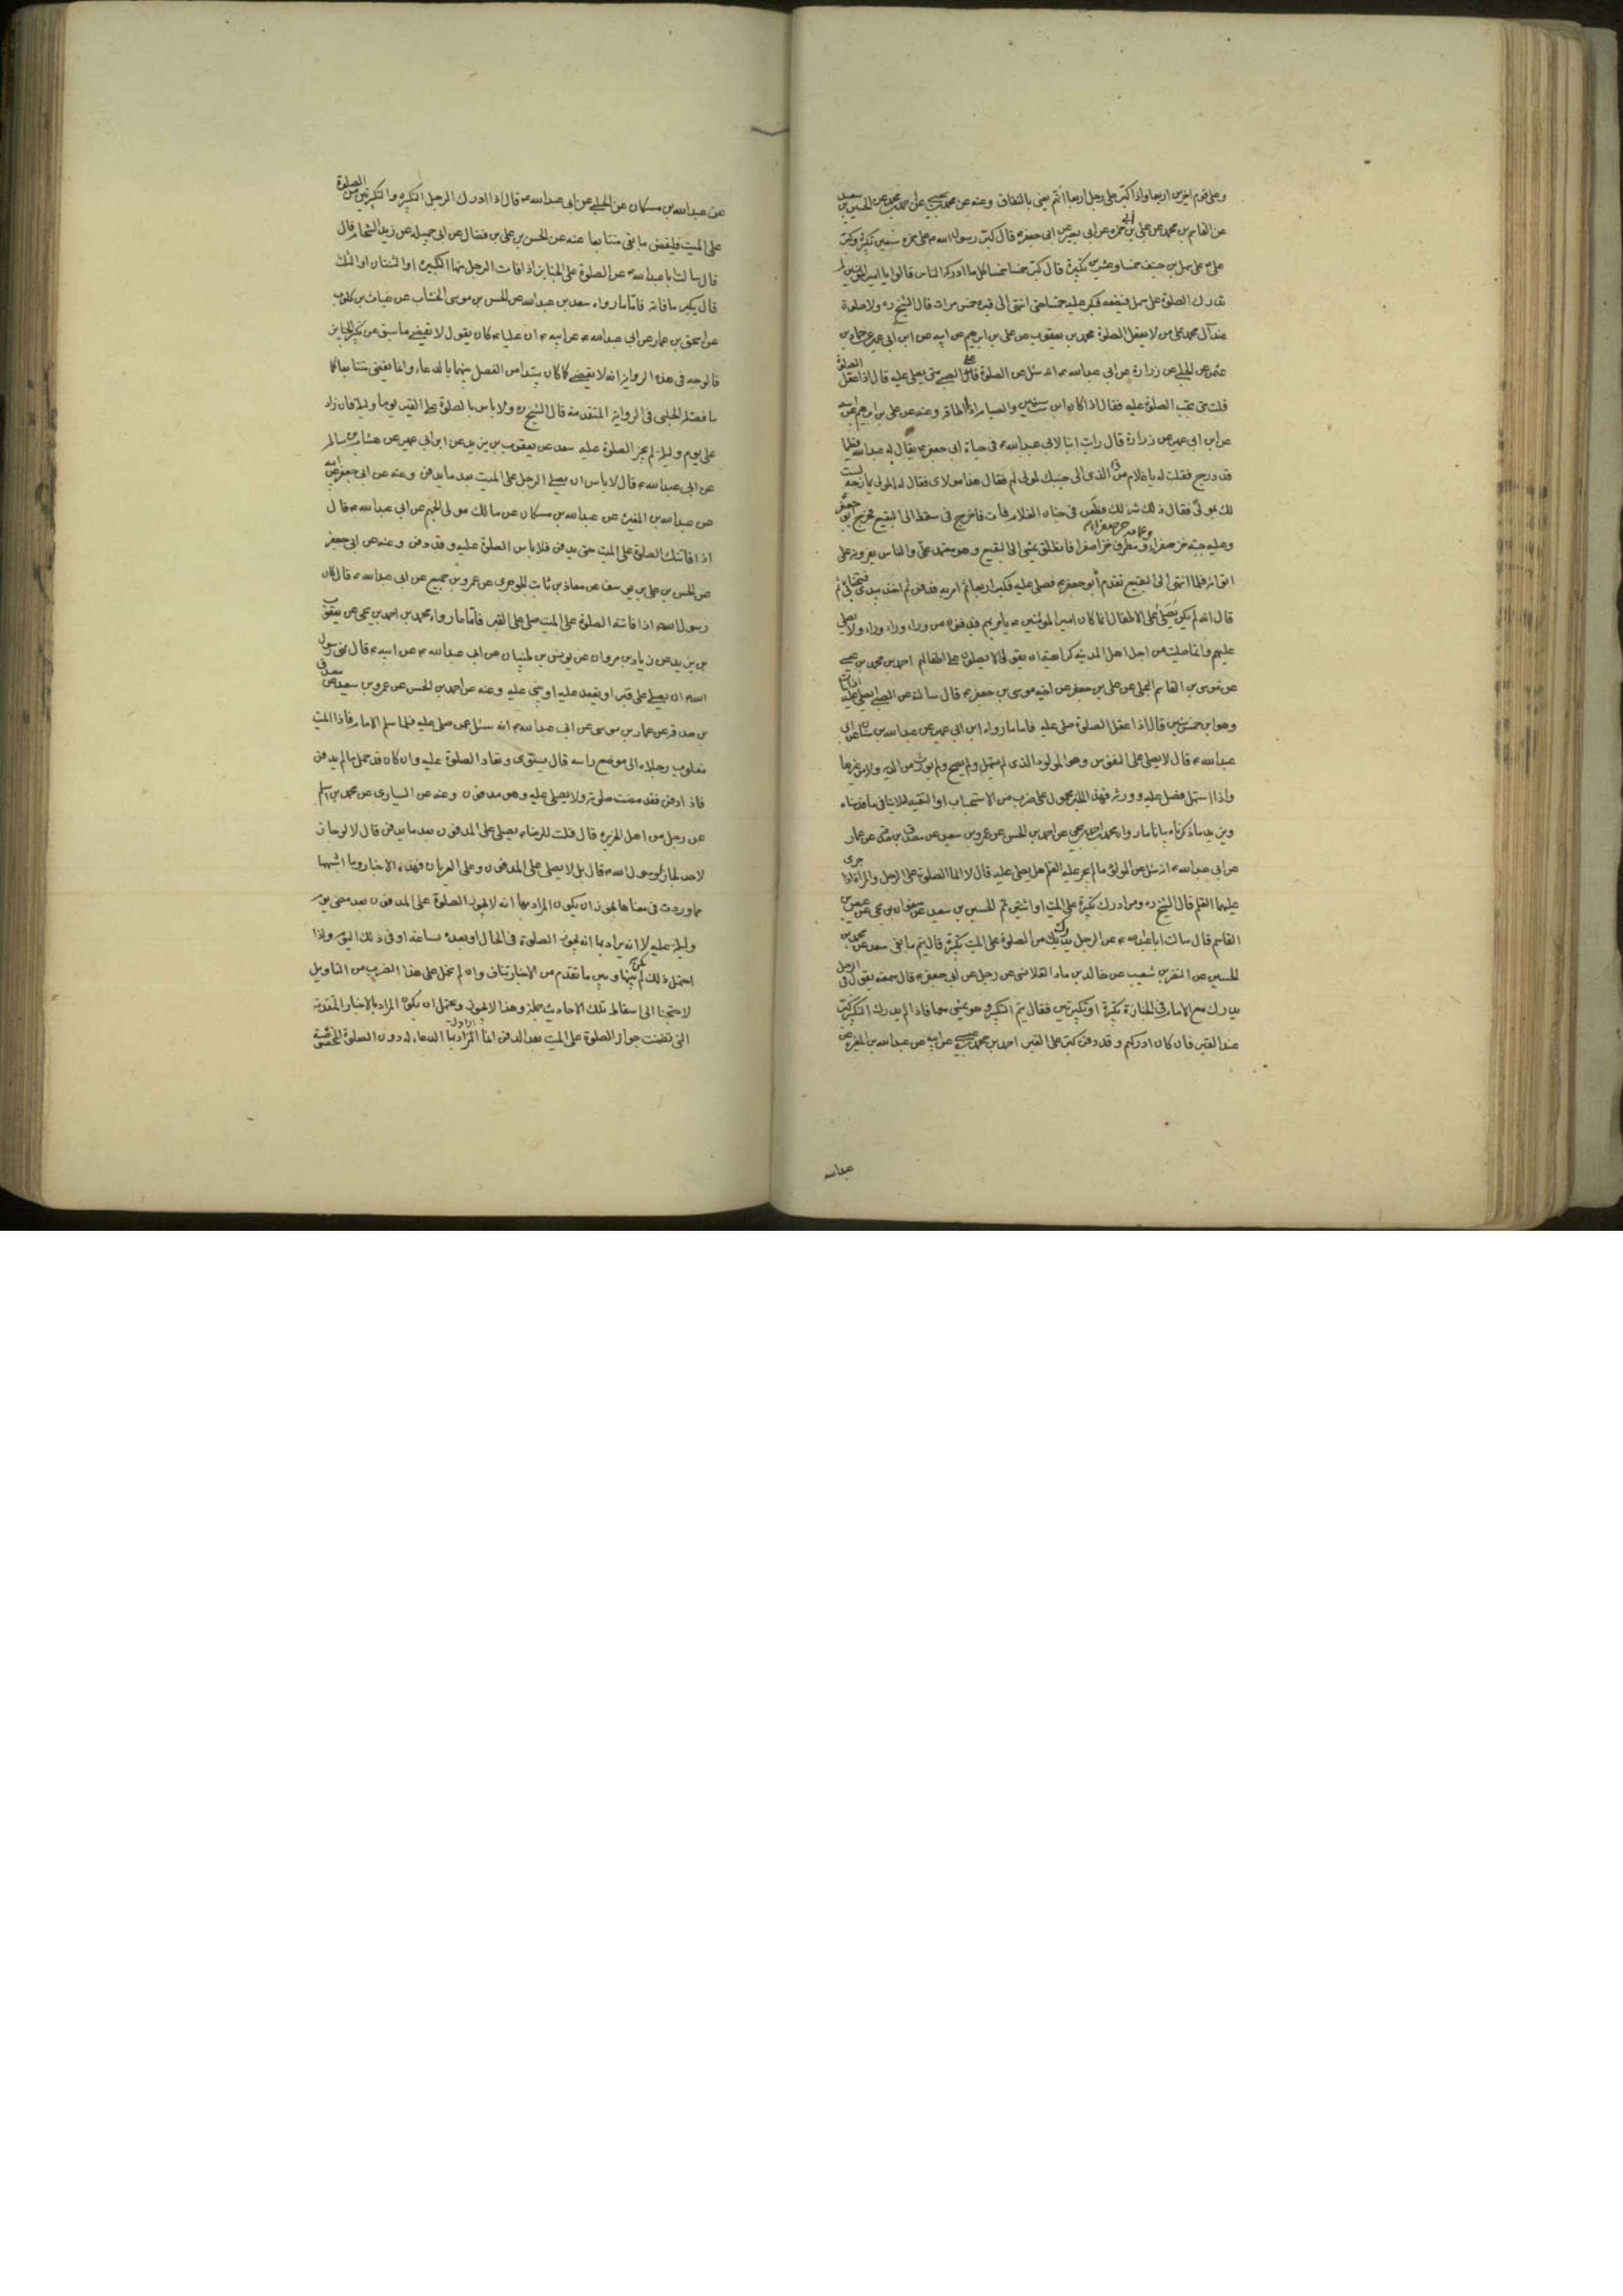 وعلى قوم اخرين اربعا واذا كبر على رجل اربعا اتهم يعنى بالنفاق وعنه عن محمد بن يحيى عن احمد بن محمد عن الحسين بن سعيد
عن القاسم بن محمد عن على بن ابى حمزه عن ابى بصير عن ابى جعفر ع قال كبر رسول الله ص على حمزه سبعين تكبيرة وكبر
على ع على سهل بن حنيف خمسا وعشرين تكبيرة قال كبر خمسا خمسا كلما ادركه الناس قالوا يا امير المؤمنين لم
ندرك الصلوة على سهل فيضعه فيكبر عليه خمسا حتى انتهى الى قبره خمس مرات قال الشيخ ره ولا صلوة
عند آل محمد على من لا يعقل الصلوة محمد بن يعقوب عن على بن ابرهيم عن ابيه عن ابن ابى عمير عن حماد بن
عثمن عن الحلبى عن زرارة عن ابى عبد الله ع انه سئل عن الصلوة على الصبى متى يصلى عليه قال اذا عقل الصلوة
قلت متى تجب الصلوة عليه فقال اذا كان ابن ست سنين والصيام اذا اطاقه وعنه عن على بن ابرهيم عن ابيه
عن ابن ابى عمير عن زرارة قال رايت ابنا لابى عبد الله ع فى حياة ابى جعفر ع يقال له عبد الله فطيما
قد درج فقلت له يا غلام من ذا الذى الى جنبك لمولى لهم فقال هذا مولاى فقال له المولى يمازحه لست
لك بمولى فقال ذلك شر لك فطعن فى جنان الغلام فمات فاخرج فى سفط الى البقيع فخرج ابو جعفر
وعليه جبة خز صفراء وعمامة خز صفراء ومطرف خز اصفر فانطلق يمشى الى البقيع وهو معتمد على والناس يعزونه على
ابن ابنه فلما انتهى الى البقيع تقدم ابو جعفر ع فصلى عليه فكبر اربعا ثم امر به فدفن ثم اخذ بيدى فتنحى بى ثم
قال انه لم يكن يصلى على الاطفال انما كان امير المؤمنين ع يامر بهم فيدفنون من وراء وراء ولا يصلى
عليهم وانما صليت من اجل اهل المدينه كراهية ان يقولوا لا يصلون على اطفالهم احمد بن محمد بن عيسى
عن موسى بن القاسم البجلى عن على بن جعفر عن اخيه موسى بن جعفر ع قال سالته عن الصبى ايصلى عليه اذا مات
وهو ابن خمس سنين قال اذا عقل الصلوة صلى عليه فاما ما رواه ابن ابى عمير عن عبد الله بن سنان عن ابى
عبد الله ع قال لا يصلى على المنفوس وهو المولود الذى لم يستهل ولم يصح ولم يورث من الدية ولا من غيرها
واذا استهل فصل عليه وورثه فهذا الخبر محمول على ضرب من الاستحباب او التقيه لئلا ينافى ما قدمناه
ويزيد ما ذكرناه بيانا ما رواه محمد بن احمد بن يحيى عن احمد بن الحسن عن عمرو بن سعيد عن مصدق بن صدقة عن عمار
عن ابى عبد الله ع انه سئل عن المولود ما لم يجر عليه القلم هل يصلى عليه قال لا انما الصلوة على الرجل والمراة اذا جرى
عليهما القلم قال الشيخ ره ومن ادرك تكبيرة على الميت او اثنتين تمم الحسين بن سعيد عن صفوان بن يحيى عن عيص بن
القاسم قال سالت ابا عبد الله ع عن الرجل يدرك من الصلوة على الميت تكبيرة قال يتم ما بقى سعد عن محمد بن
الحسين عن النضر بن شعيب عن خالد بن ماد القلانسى عن رجل عن ابى جعفر ع قال سمعته يقول فى الرجل
يدرك مع الامام فى الجنازة تكبيرة او تكبيرتين فقال يتم التكبير وهو يمشى معها فاذا لم يدرك التكبير كبر
عند القبر فان كان ادركهم وقد دفن كبر على القبر احمد بن محمد بن عيسى عن ابيه عن عبد الله بن المغيره عن
عبد الله
عن عبد الله بن مسكان عن الحلبى عن ابى عبد الله ع قال اذا ادرك الرجل التكبيره والتكبيرتين من الصلوة
على الميت فليقض ما بقى متتابعا عنه عن الحسن بن على بن فضال عن ابى جميله عن زيد الشحام قال
قال سالت ابا عبد الله ع عن الصلوة على الجنايز اذا فات الرجل منها التكبيره او الثنتان او الثلث
قال يكبر ما فاته فاما ما رواه سعد بن عبد الله عن الحسن بن موسى الخشاب عن غياث بن كلوب
عن اسحق بن عمار عن ابى عبد الله ع عن ابيه ع ان عليا ع كان يقول لا يقضى ما سبق من تكبير الجنايز
فالوجه فى هذه الرواية انه لا يقضى كما كان يبتدا من الفصل بينها بالدعاء وانما يقضى متتابعا كما
ما فصله الحلبى فى الرواية المتقدمة قال الشيخ ره ولا باس بالصلوة على القبر يوما وليلة فان زاد
على يوم وليلة لم يجز الصلوة عليه سعد عن يعقوب بن يزيد عن ابن ابى عمير عن هشام بن سالم
عن ابى عبد الله ع قال لا باس ان يصلى الرجل على الميت بعد ما يدفن وعنه عن ابى جعفر عن ابيه
عن عبد الله بن المغيره عن عبد الله بن مسكان عن مالك مولى الجهم عن ابى عبد الله ع قال
اذا فاتتك الصلوة على الميت حتى يدفن فلا باس الصلوة عليه وقد دفن وعنه عن ابى جعفر
عن الحسن بن على بن يوسف عن معاذ بن ثابت الجوهرى عن عمرو بن جميع عن ابى عبد الله ع قال كان
رسول الله ص اذا فاتته الصلوة على الميت صلى على القبر فاما ما رواه محمد بن احمد بن يحيى عن يعقوب
بن يزيد عن زياد بن مروان عن يونس بن ظبيان عن ابى عبد الله ع عن ابيه ع قال نهى رسول
الله ص ان يصلى على قبر او يقعد عليه او يبنى عليه وعنه عن احمد بن الحسن عن عمرو بن سعيد عن مصدق
بن صدقة عن عمار بن موسى عن ابى عبد الله ع انه سئل عمن صلى عليه فلما سلم الامام فاذا الميت
مقلوب رجلاه الى موضع راسه قال يسوى وتعاد الصلوة عليه وان كان قد حمل ما لم يدفن
فاذا دفن فقد مضت صلوته ولا يصلى عليه وهو مدفون وعنه عن السيارى عن محمد بن اسلم
عن رجل من اهل الجزيره قال قلت للرضا ع يصلى على المدفون بعد ما يدفن قال لا لو جاز
لاحد لجاز لرسول الله ص قال بل لا يصلى على المدفون وعلى العريان فهذه الاخبار وما اشبهها
مما وردت فى معناها يجوز ان يكون المراد بها انه لا يجوز الصلوة على المدفون بعد مضى يوم
وليلة عليه لا انه يراد بها انه يجوز الصلوة فى الحال او بعده بساعة او فى ذلك اليوم واذا
احتمل ذلك لم يكن بينها وبين ما تقدم من الاخبار تناف وان لم نحمل على هذا الضرب من التاويل
لاحتجنا الى اسقاط تلك الاحاديث جملة وهذا لا يجوز ويحتمل ان يكون المراد بالاخبار المتقدمة
التى تضمنت جواز الصلوة على الميت بعد الدفن انما المراد بها الدعاء له دون الصلوة